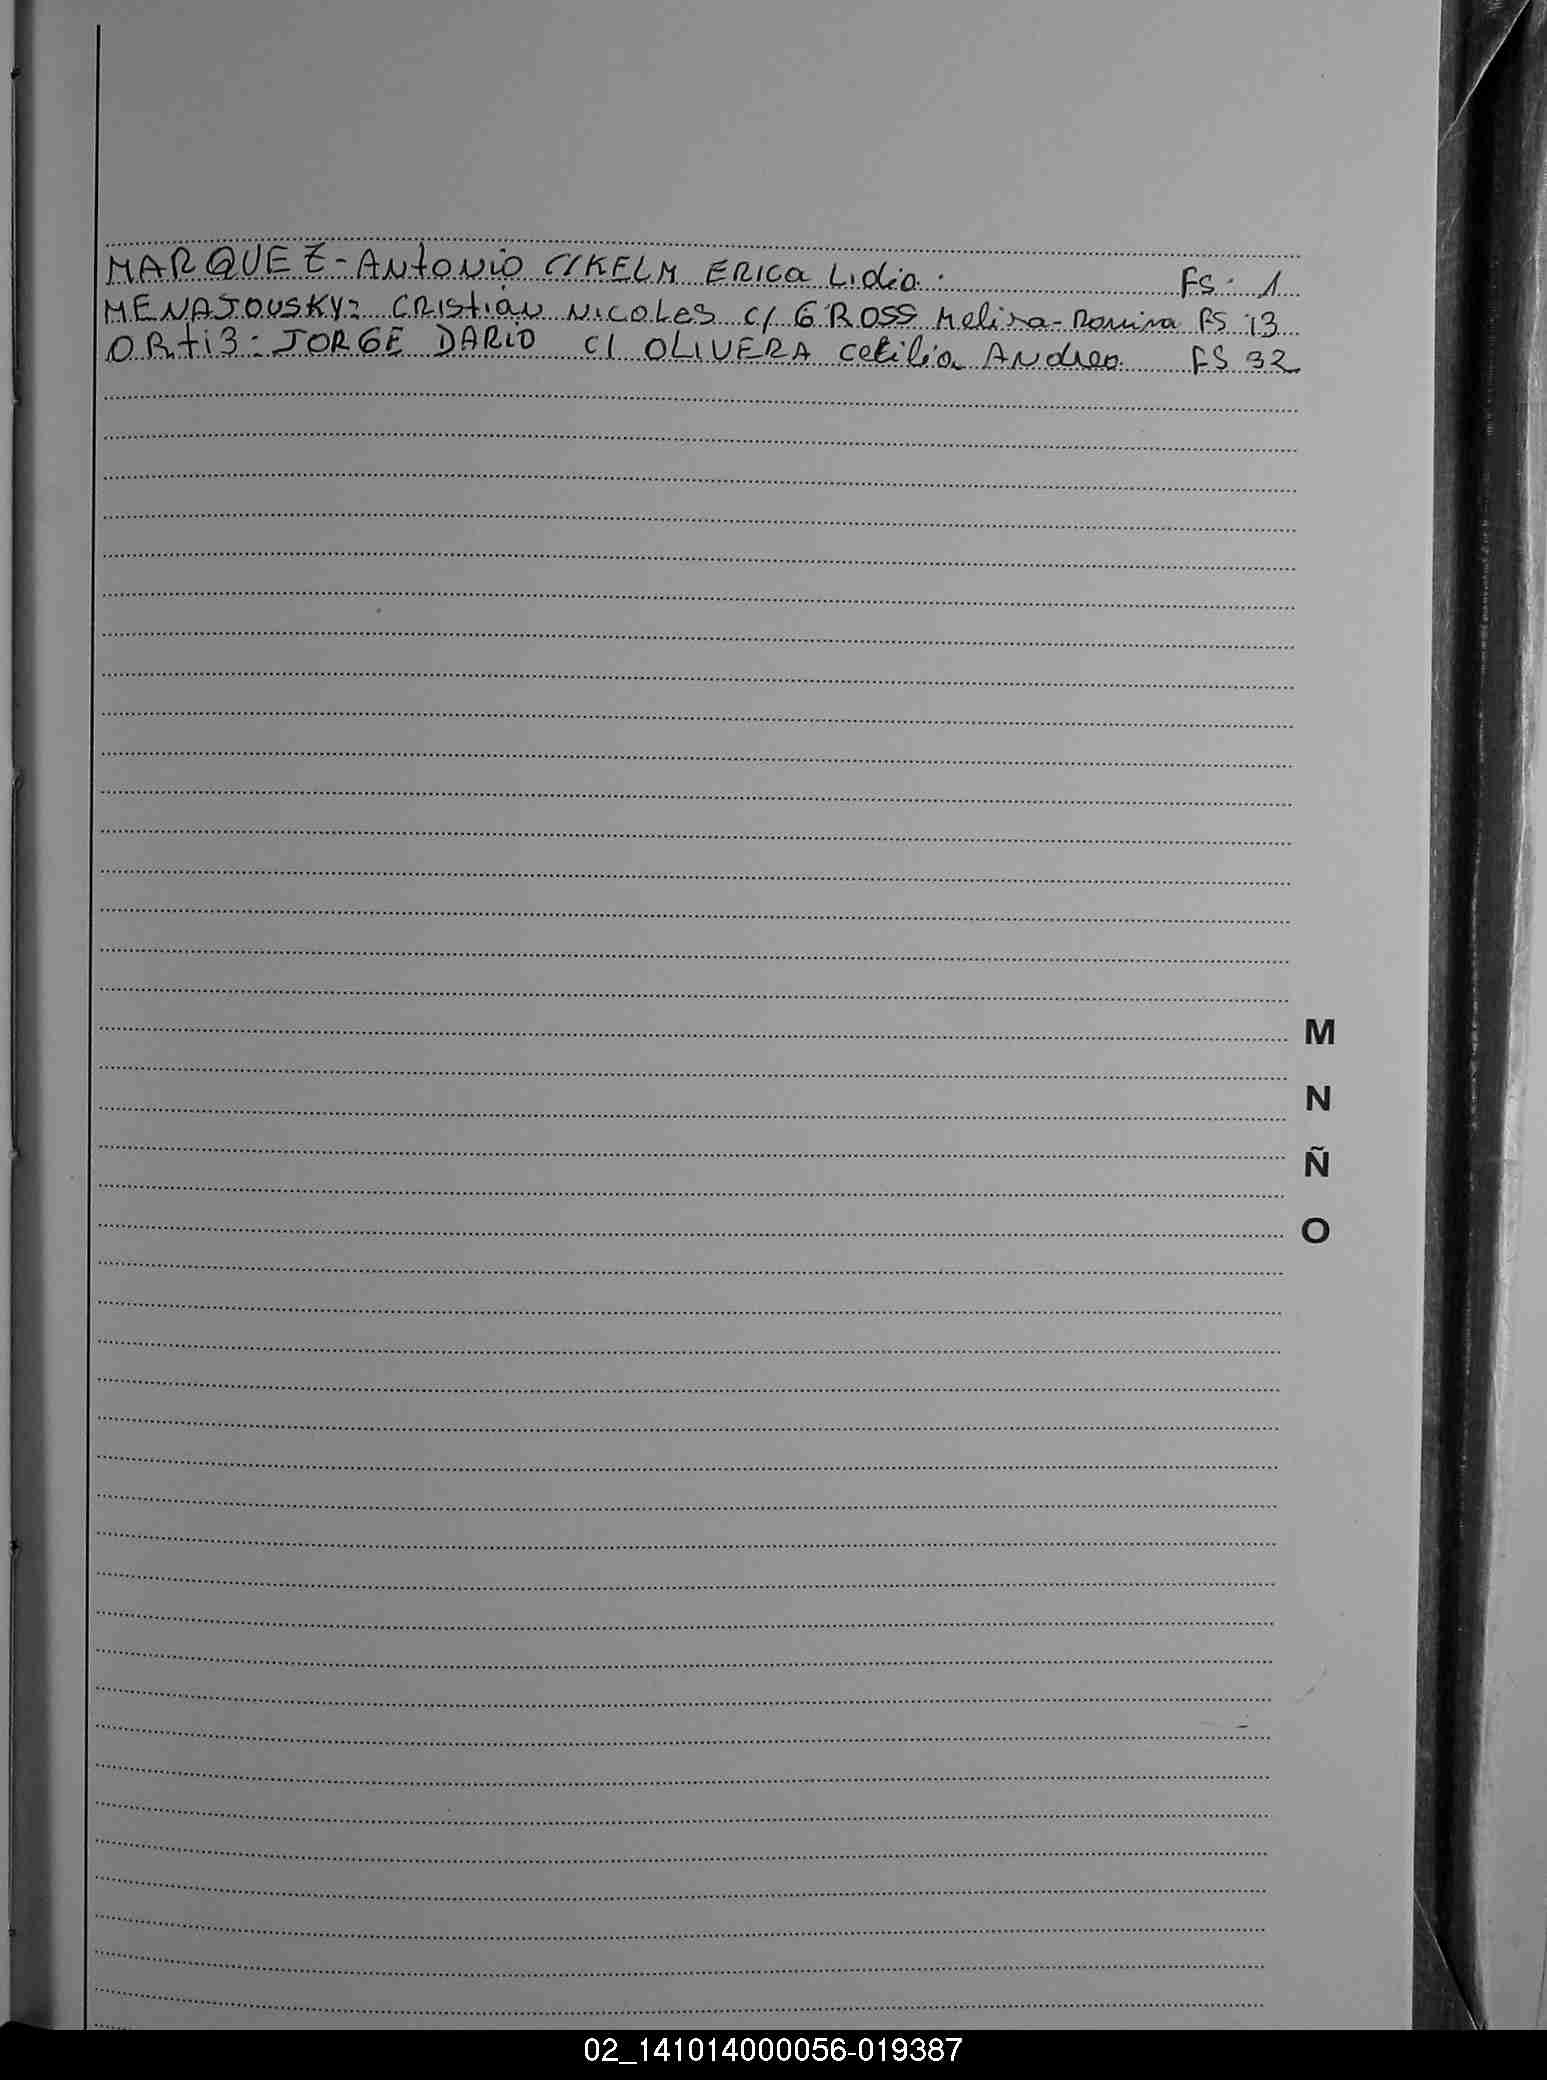 MARQUEZ - Antonio C/ KELM ERICA Lidia. FS: 1
MENAJOUSKY: CRistian Nicoles c/ GROSS Melisa-Romina FS 13
ORti3: JORGE DARIO C/ OLIVERA Cecilia Andrea FS 32
M
N
Ñ
O
02_141014000056-019387